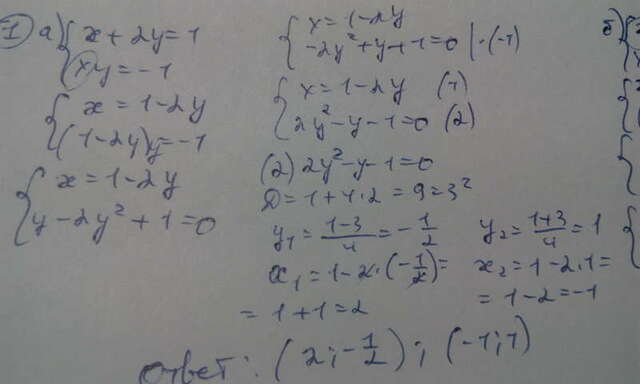 1 а) { x + 2y = 1
xy = -1
{ x = 1 - 2y
(1 - 2y)y = -1
{ x = 1 - 2y
y - 2y² + 1 = 0
{ x = 1 - 2y
-2y² + y + 1 = 0 | · (-1)
{ x = 1 - 2y (1)
2y² - y - 1 = 0 (2)
(2) 2y² - y - 1 = 0
D = 1 + 4 · 2 = 9 = 3²
y₁ = (1-3)/4 = -1/2 y₂ = (1+3)/4 = 1
x₁ = 1 - 2 · (-1/2) = x₂ = 1 - 2 · 1 =
= 1 + 1 = 2 = 1 - 2 = -1
Ответ: (2; -1/2); (-1; 1)
б) {